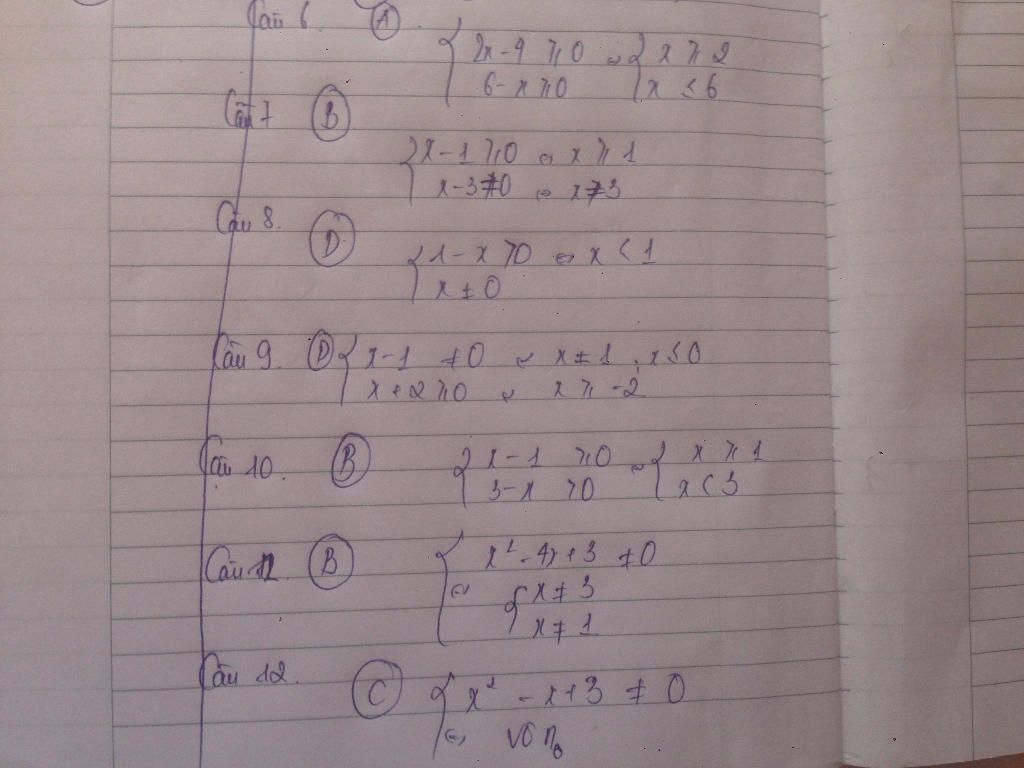 Câu 6. A { 2x - 4 ⩾ 0 ⇔ { x ⩾ 2
6 - x ⩾ 0 x ≤ 6
Câu 7 B
{ x - 1 ⩾ 0 ⇔ x ⩾ 1
x - 3 ≠ 0 ⇔ x ≠ 3
Câu 8. D
{ 1 - x > 0 ⇔ x < 1
x ≠ 0
Câu 9. D { x - 1 ≠ 0 ⇔ x ≠ 1 ; x ≤ 0
x + 2 ⩾ 0 ⇔ x ⩾ -2
Câu 10. B { x - 1 ⩾ 0 ⇔ { x ⩾ 1
3 - x > 0 x < 3
Câu 11. B { x² - 4x + 3 ≠ 0
⇔ { x ≠ 3
x ≠ 1
Câu 12. C { x² - x + 3 ≠ 0
⇔ Vô n₀